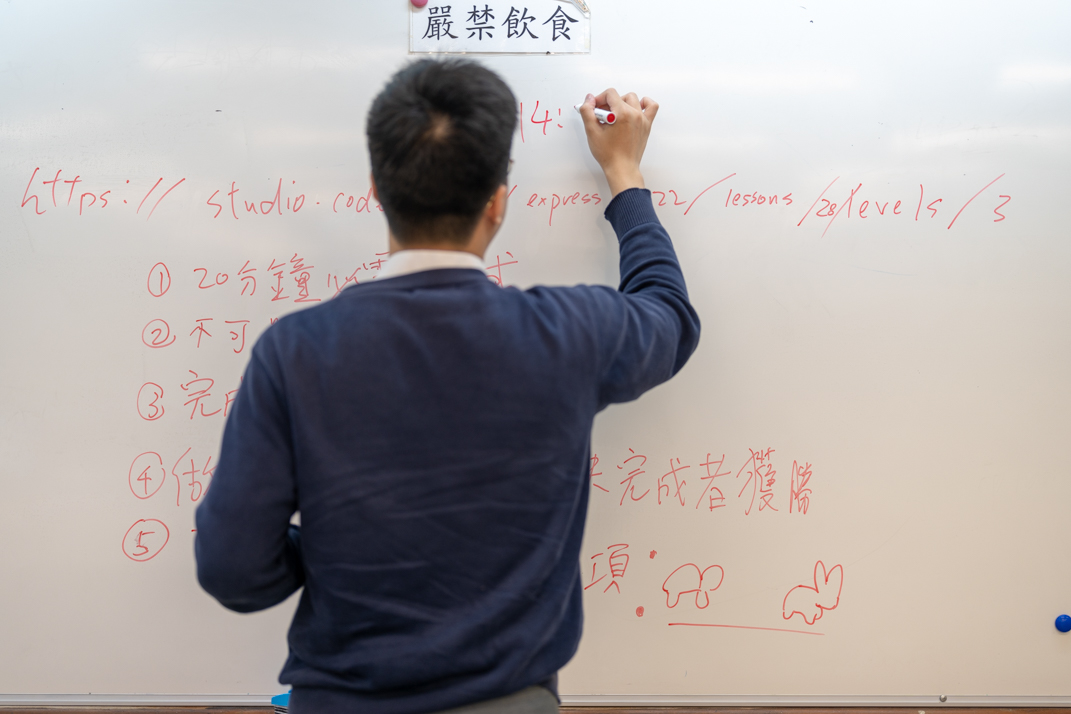 嚴禁飲食
14:
https://studio.cod express 22/lessons/28/levels/3
① 20分鐘 式
② 不可
③ 完成
④ 做 完成者獲勝
⑤ 項: